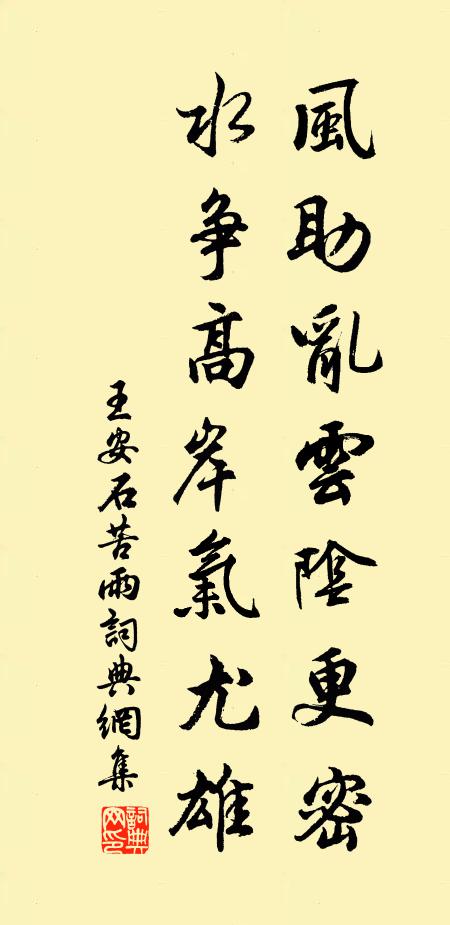 風助亂雲陰更密
水争高岸氣尤雄
王安石苦雨詞典網集
詞典網印